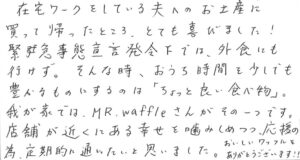 在宅ワークをしている夫へのお土産に
買って帰ったところ、とても喜びました！
緊急事態宣言発令下では、外食にも
行けず。そんな時、おうち時間を少しでも
豊かなものにするのは「ちょっと良い食べ物」。
我が家では、MR.waffleさんがその一つです。
店舗が近くにある幸せを噛みしめつつ、応援の
為、定期的に通いたいと思いました。
おいしいワッフルを
ありがとうございます!!